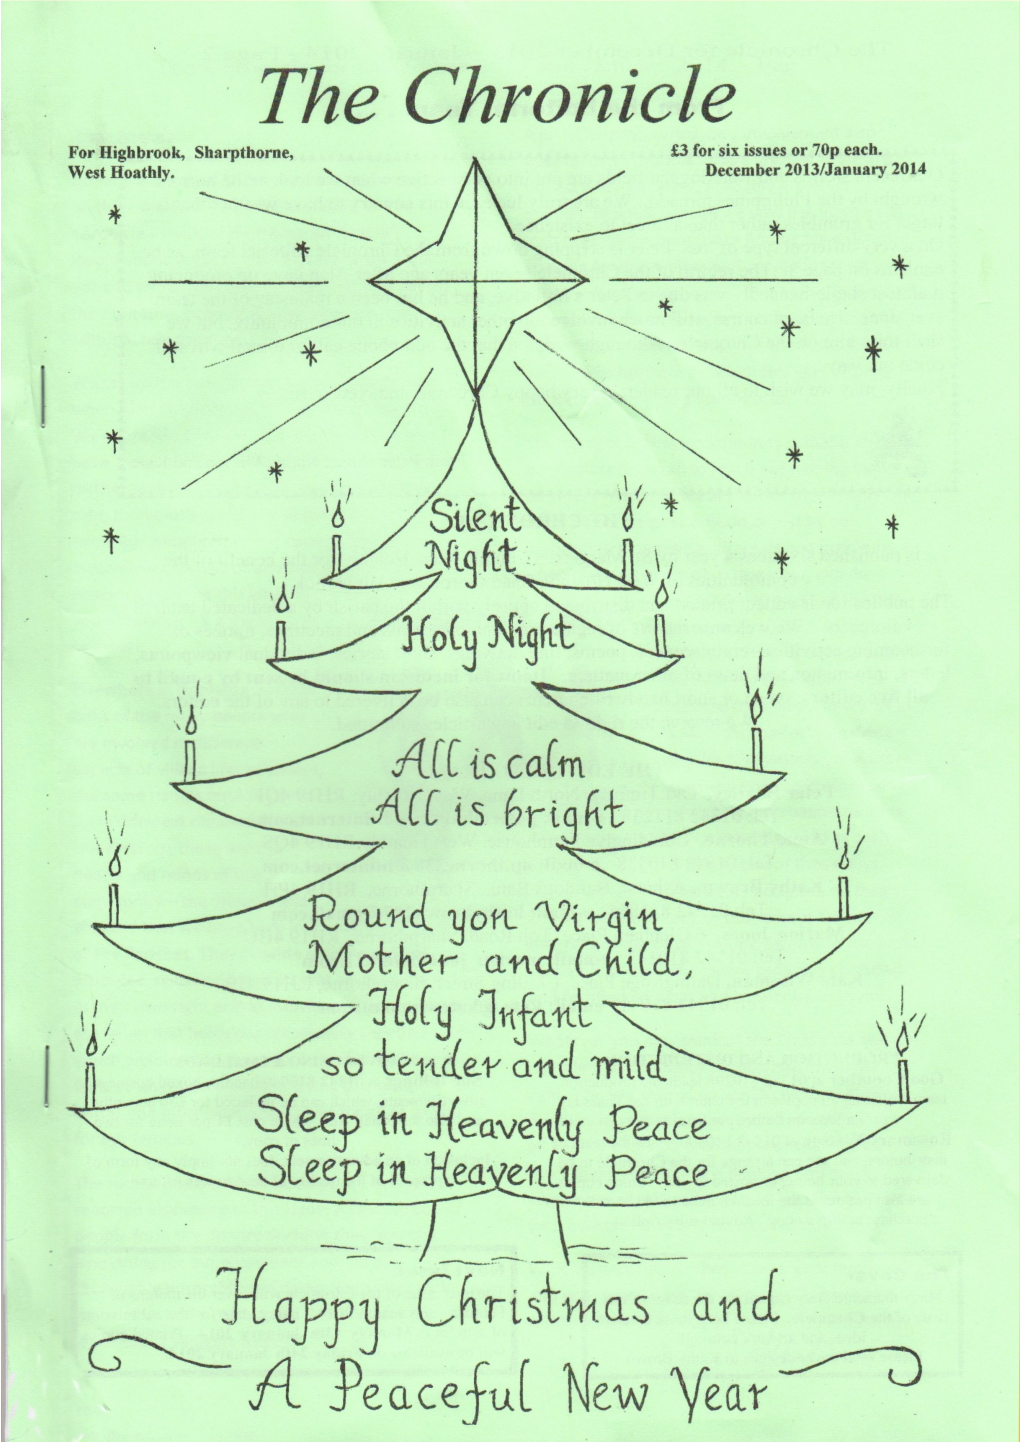 The Chronicle
For Highbrook, Sharpthorne,
West Hoathly.
£3 for six issues or 70p each.
December 2013/January 2014
Silent
Night
Holy Night
All is calm
All is bright
Round yon Virgin
Mother and Child,
Holy Infant
so tender and mild
Sleep in Heavenly Peace
Sleep in Heavenly Peace
Happy Christmas and
A Peaceful New Year